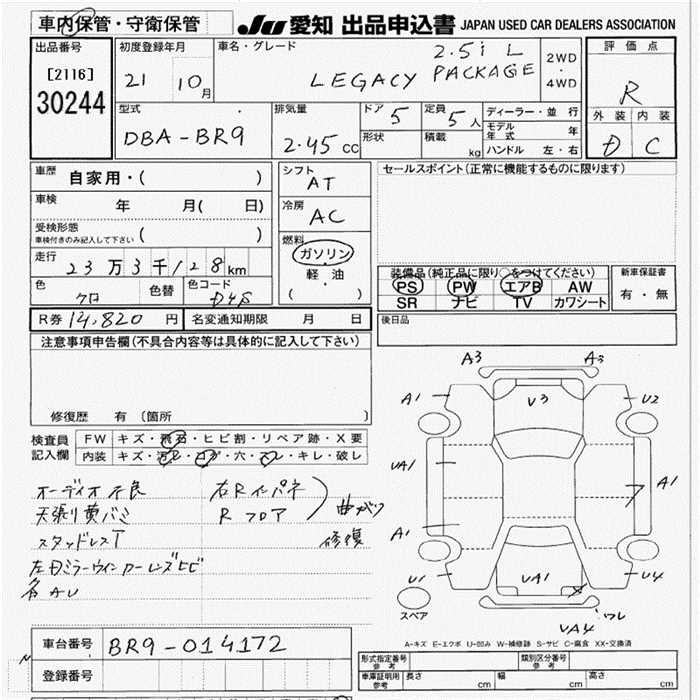 車内保管・守衛保管
JU 愛知 出品申込書 JAPAN USED CAR DEALERS ASSOCIATION
出品番号
[2116]
30244
初度登録年月
21 10月
車名・グレード
LEGACY 2.5i L PACKAGE
2WD
・
4WD
評価点
R
外装 内装
D C
型式
DBA-BR9
排気量
2.45cc
ドア 5
形状
定員 5人
積載 kg
ディーラー・並行
モデル年式 年
ハンドル 左・右
車歴 自家用・( )
車検 年 月( 日)
受検形態
車検付きのみ記入して下さい ( )
走行 23万3千128km
色 クロ 色替
色コード D4S
シフト
AT
冷房
AC
燃料
ガソリン
軽・油
( )
セールスポイント(正常に機能するものに限ります)
装備品(純正品に限り○をつけてください)
PS PW エアB AW
SR ナビ TV カワシート
新車保証書
有・無
R券 14,820円 名変通知期限 月 日
後日品
注意事項申告欄(不具合内容等は具体的に記入して下さい)
修復歴 有(箇所 )
検査員記入欄
FW キズ・飛石・ヒビ割・リペア跡・X要
内装 キズ・汚レ・コゲ・穴・スレ・キレ・破レ
オーディオ不良
天張り黄バミ
スタッドレスT
左ドミラーウインカーレンズヒビ
各AU
右Rインパネ
Rフロア
曲がり
修復
A3 A3
A1 V3 U2
UA1 A1
A1
U1 UA1 U4
スペア
ワレ
VA4
A-キズ E-エクボ U-凹み W-補修跡 S-サビ C-腐食 XX-交換済
車台番号 BR9-014172
登録番号
形式指定番号
参考
類別区分番号
参考
車庫証明用
参考
長さ cm 幅 cm 高さ cm